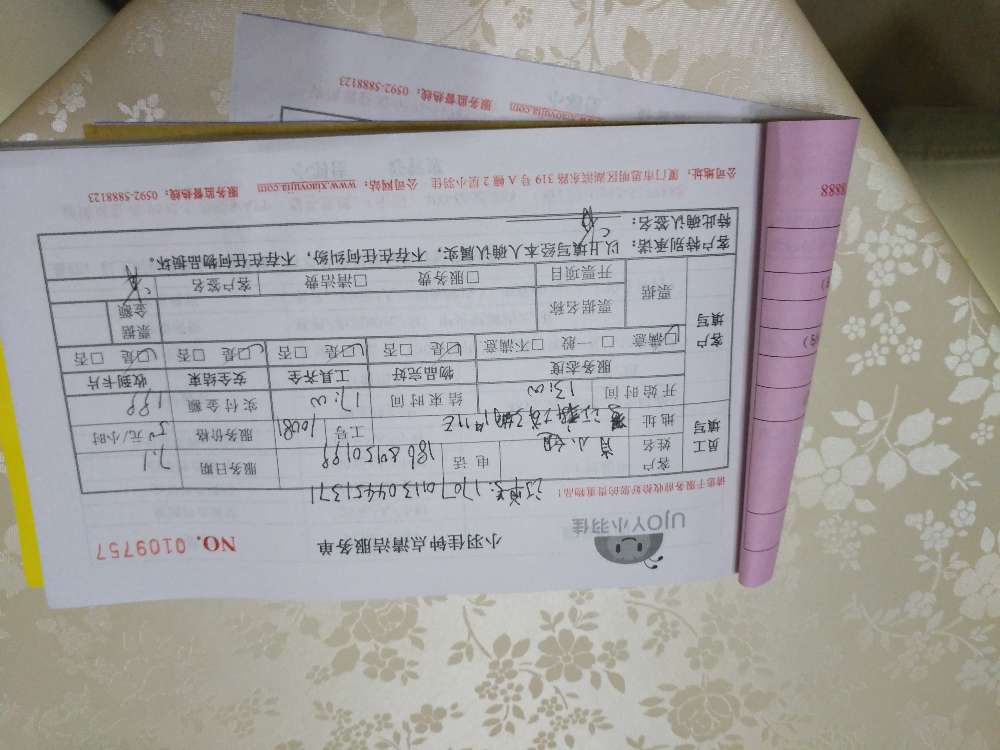 UJOY小羽佳
小羽佳钟点清洁服务单
NO. 0109757
请您于服务前收捡好您的贵重物品!
订单号:1707011304451371
员工填写
客户姓名 肖小姐 电话 18684150199 服务日期 7.1
地址 工号 10081 服务价格 50元/小时
开始时间 13:00 结束时间 17:00 实付金额 199
客户填写
服务态度 物品完好 工具齐全 安全结束 收到卡片
☑满意 □一般 □不满意 ☑是 □否 ☑是 □否 ☑是 □否 ☑是 □否
票据 票据名称 票据金额
开票项目 □服务费 □清洁费 客户签名
客户特别承诺:以上填写经本人确认属实,不存在任何纠纷,不存在任何物品损坏。
特此确认签名:
公司地址:厦门市思明区湖滨东路319号A幢2层小羽佳 公司网站:www.xiaoyujia.com 服务监督热线:0592-5888123
www.xiaoyujia.com 服务监督热线:0592-5888123
8888